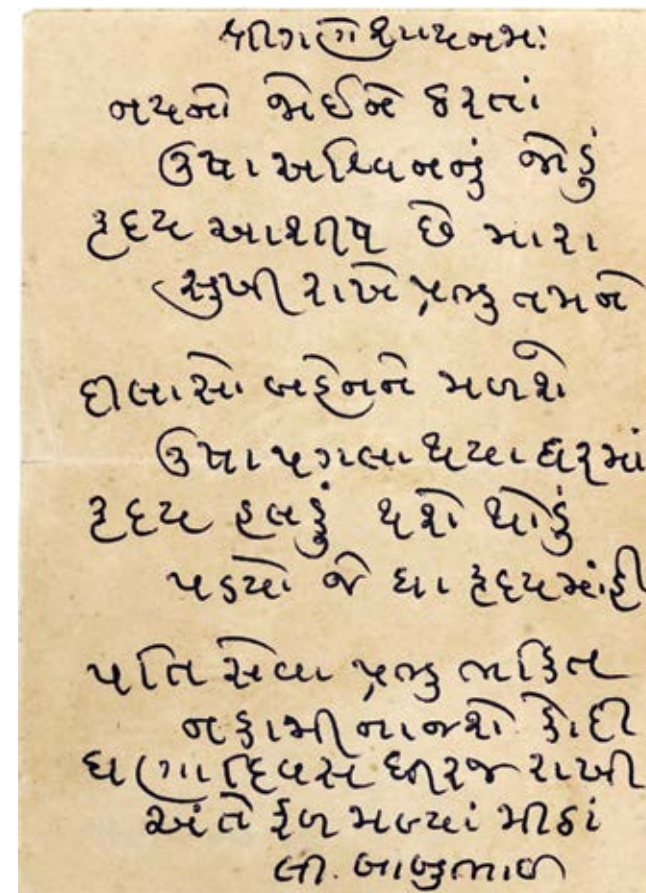 શ્રીગણેશાયનમઃ
નયનો જોઈને ઠરતાં
ઉષા અશ્વિનનું જોડું
હૃદય આશીષ છે મારા
સુખી રાખે પ્રભુ તમને
દીલાસો બહેનને મળશે
ઉષા પગલા થયા ઘરમાં
હૃદય હલકું થશે થોડું
પડયો જે ઘા હૃદયમાંહી
પતિ સેવા પ્રભુ ભકિત
નકામી ના જશે કોદી
ઘણા દિવસ ધીરજ રાખી
અંતે ફળ મળ્યાં મીઠાં
લી. બાબુભાઈ